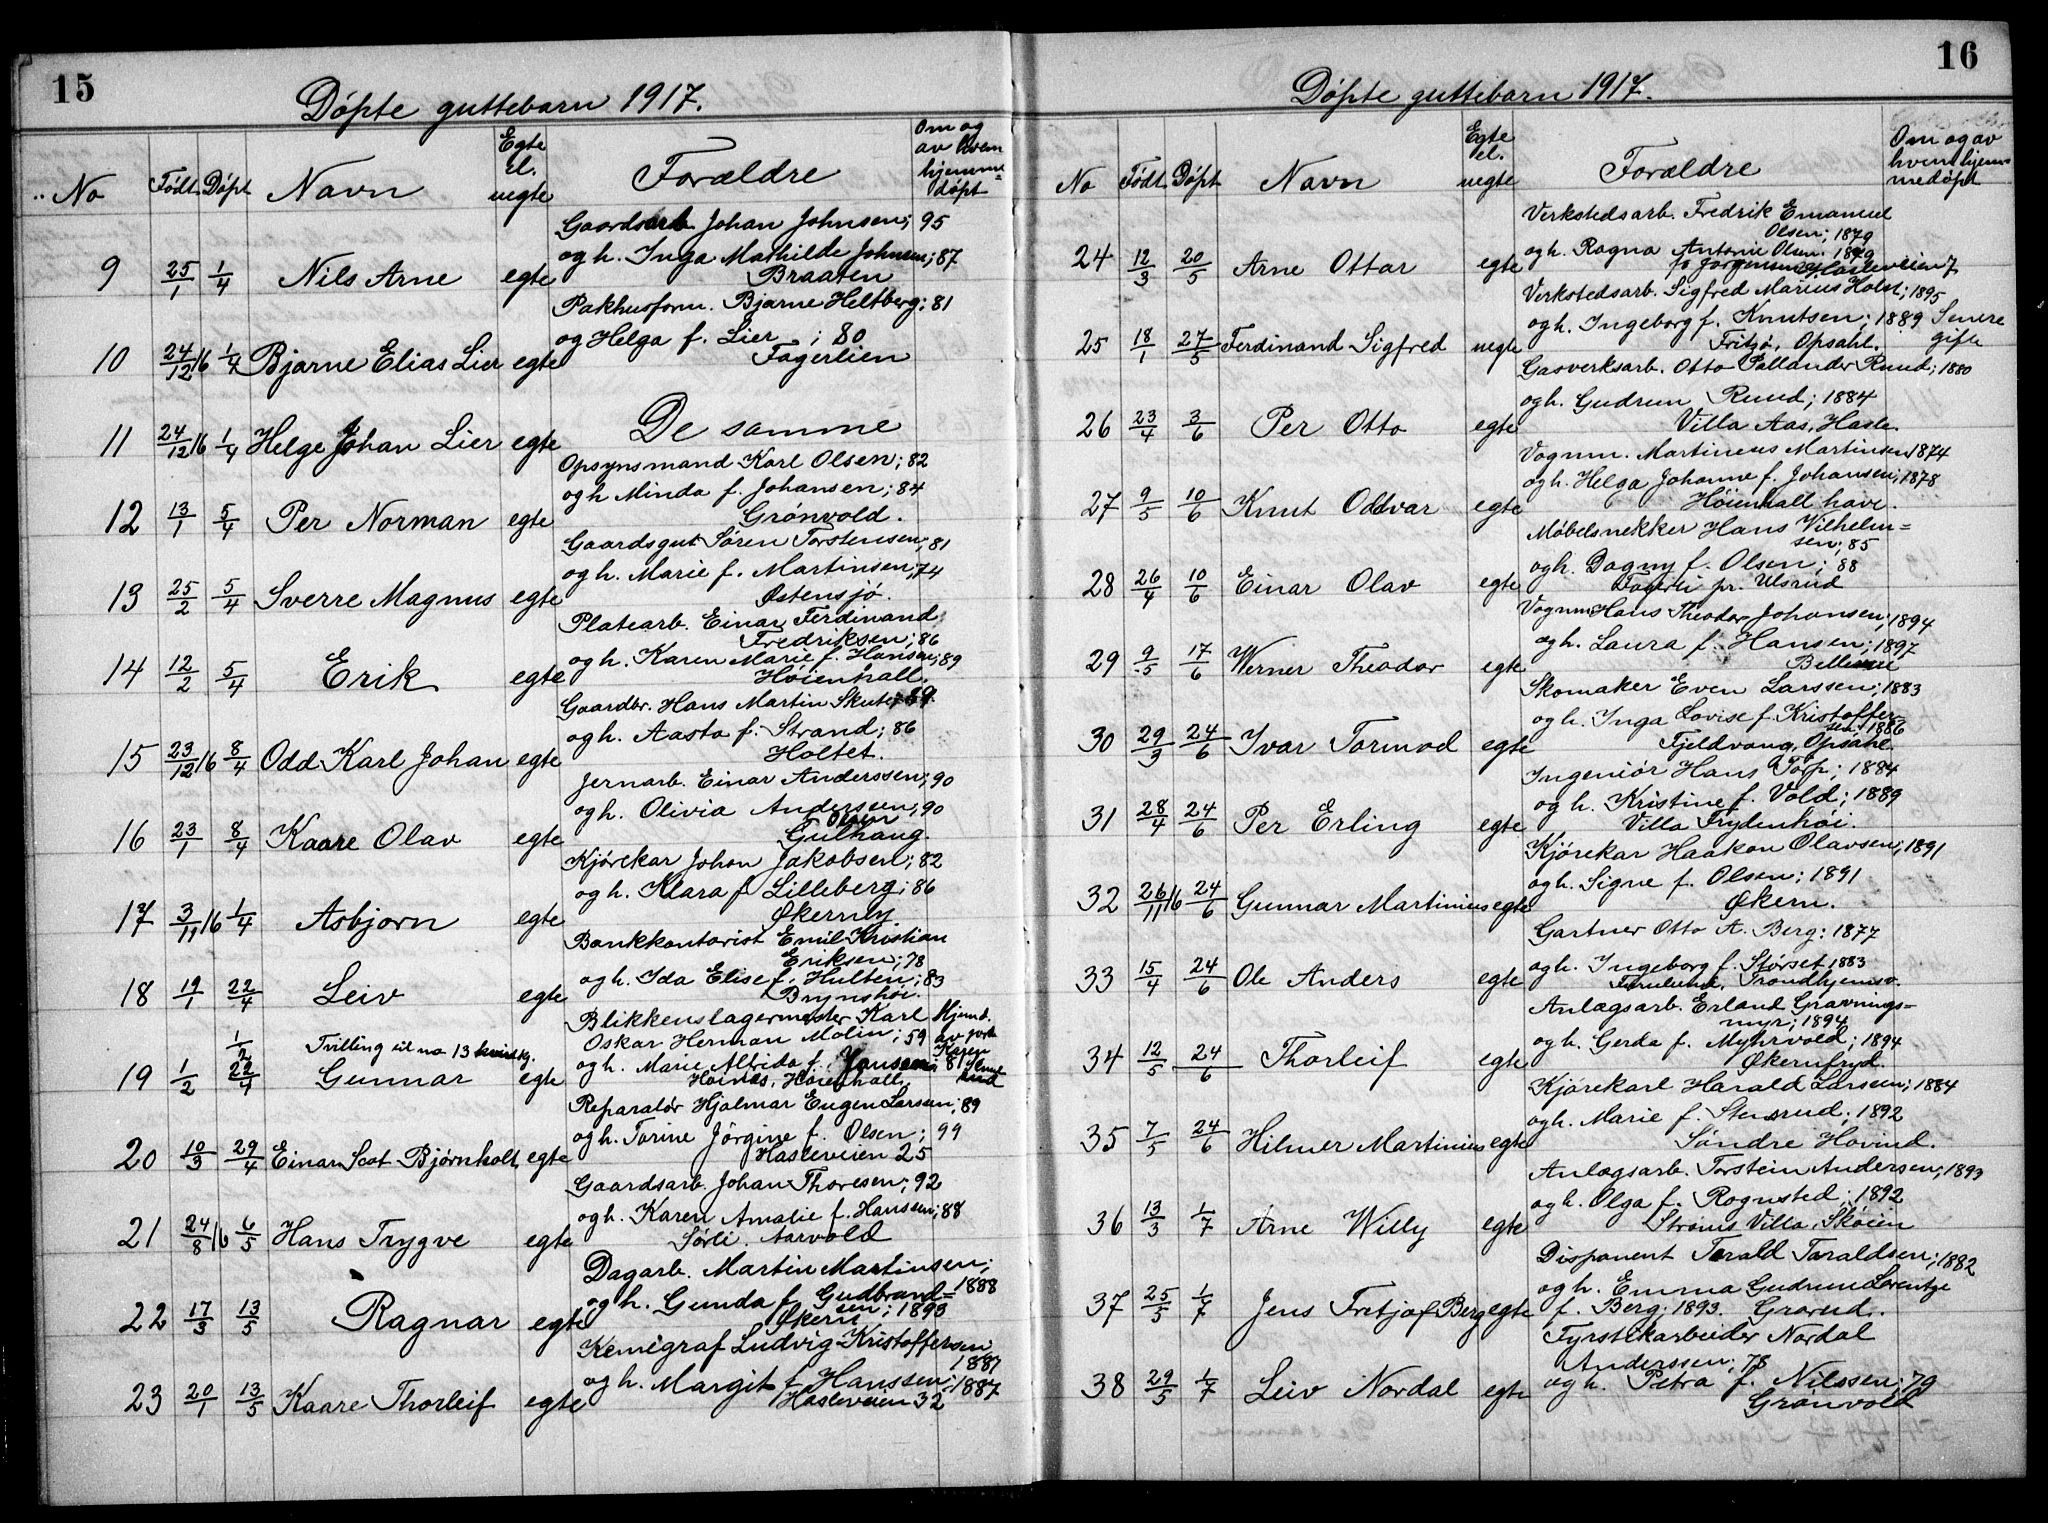 15
Døpte guttebarn 1917.
No Født Døpt Navn Egte el. uegte Forældre Om og av hvem hjemmedøpt
Gaardsarb. Johan Johnsen; 95
og h. Inga Mathilde Johnsen; 87
9 25/1 1/4 Nils Arne egte Braaten
Pakhusform. Bjarne Heltberg; 81
og Helga f. Lier ; 80
10 24/12 16 1/4 Bjarne Elias Lier egte Fagerlien
11 24/12 16 1/4 Helge Johan Lier egte De samme
Opsynsmand Karl Olsen; 82
og h Minda f. Johansen; 84
12 13/1 5/4 Per Norman egte Grønvold.
Gaardsgut Søren Torstensen; 81
og h. Marie f. Martinsen; 74
13 25/2 5/4 Sverre Magnus egte Østensjø.
Platearb. Einar Ferdinand
Fredriksen; 86
og h. Karen Marie f. Hansen; 89
14 12/2 5/4 Erik egte Høienhall.
Gaardbr. Hans Martin
og h. Aasta f. Strand; 86
15 23/12 16 8/4 Odd Karl Johan egte Holtet.
Jernarb. Einar Anderssen; 90
og h. Olivia Anderssen; 90
16 23/1 8/4 Kaare Olav egte Gulhaug.
Kjørekar Johan Jakobsen; 82
og h. Klara f Lilleberg; 86
17 3/11 16 1/4 Asbjørn egte Økernly.
Bankkontorist Emil Kristian
Eriksen; 78
og h. Ida Elise f. Hulten; 83
18 19/1 22/4 Leiv egte Brynshøi.
Blikkenslagermester Karl Hjemd.
1/2 Tvilling til no 13 kvindkj. Oskar Herman Molin; 59 av jord
og h. Marie Alfrida f. Jansen 81
19 1/2 22/4 Gunnar egte Høinæs, Høienhall.
Reparatør Hjalmar Eugen Larsen; 89
og h. Torine Jørgine f. Olsen; 99
20 10/3 29/4 Einar Scot Bjørnholt egte Hasleveien 25
Gaardsarb. Johan Thoresen; 92
og h. Karen Amalie f. Hanssen; 88
21 24/8 16 6/5 Hans Trygve egte Sørli. Aarvold
Dagarb. Martin Martinsen;
1888
og h. Gunda f. Gudbrand=
sen; 1893
22 17/3 13/5 Ragnar egte Økern
Kemigraf Ludvig Kristoffersen
1887
og h. Margit f Hanssen; 1887
23 20/1 13/5 Kaare Thorleif egte Hasleveien 32
16
Døpte guttebarn 1917.
No Født Døpt Navn Egte el. uegte Forældre Om og av hvem hjemmedøpt
Verkstedsarb. Fredrik Emanuel
Olsen; 1879
og h. Ragna Antonie Olsen. 1879
24 12/3 20/5 Arne Ottar egte f. Jørgensen Hasleveien 7
Verkstedsarb. Sigfred Marius Holst; 1895
og h. Ingeborg f. Knutsen; 1889 Senere gifte
25 18/1 27/5 Ferdinand Sigfred uegte Opsahl.
Gasverksarb. Otto Pallander Ruud; 1880
og h. Gudrun Ruud; 1884
26 23/4 3/6 Per Otto egte Villa Aas, Hasle.
Vognm. Martineus Martinsen 1874
og h. Helga Johanne f. Johansen; 1878
27 9/5 10/6 Knut Oddvar egte Høienhall have.
Møbelsnekker Hans Vilhelm=
sen; 85
og h. Dagny f. Olsen; 88
28 26/4 10/6 Einar Olav egte Fagerli pr. Ulsrud
Vognm Hans Theodor Johansen; 1894
og h. Laura f. Hansen; 1897
29 9/5 17/6 Werner Theodor egte Bellevue
Skomaker Even Larssen; 1883
og h. Inga Lovise f. Kristoffer-
sen: 1886
30 29/3 24/6 Ivar Tormod egte Fjeldvang, Opsahl.
Ingeniør Hans Torp; 1884
og h. Kristine f. Vold; 1889
31 28/4 24/6 Per Erling egte Villa Frydenhøi.
Kjørekar Haakon Olavsen; 1891
og h. Signe f. Olsen; 1891
32 26/11 16 24/6 Gunnar Martinius egte Økern.
Gartner Otto A. Berg: 1877
og h. Ingeborg f. Størset 1883
33 15/4 24/6 Ole Anders egte Furulund, Trondhjemsv.
Anlægsarb. Erland Gravnings=
myr; 1894
og h. Gerda f. Myhrvold; 1894
34 12/5 24/6 Thorleif egte Økernfryd.
Kjørekarl Harald Larsen; 1884
og h. Marie f. Stensrud; 1892
35 7/5 24/6 Hilmer Martinius egte Søndre Hovind.
Anlægsarb. Torstein Andersen; 1893
og h. Olga f. Rognsted; 1892
36 13/3 1/7 Arne Willy egte Strøms Villa, Skøien
Disponent Torald Toraldsen; 1882
og h. Emma Gudrun Lorentze
37 25/5 1/7 Jens Fritjof Berg egte f. Berg; 1893. Grorud.
Fyrstikarbeider Nordal
Anderssen; 78
38 29/5 1/7 Leiv Nordal egte og h. Petra f. Nilssen; 79
Grønvold